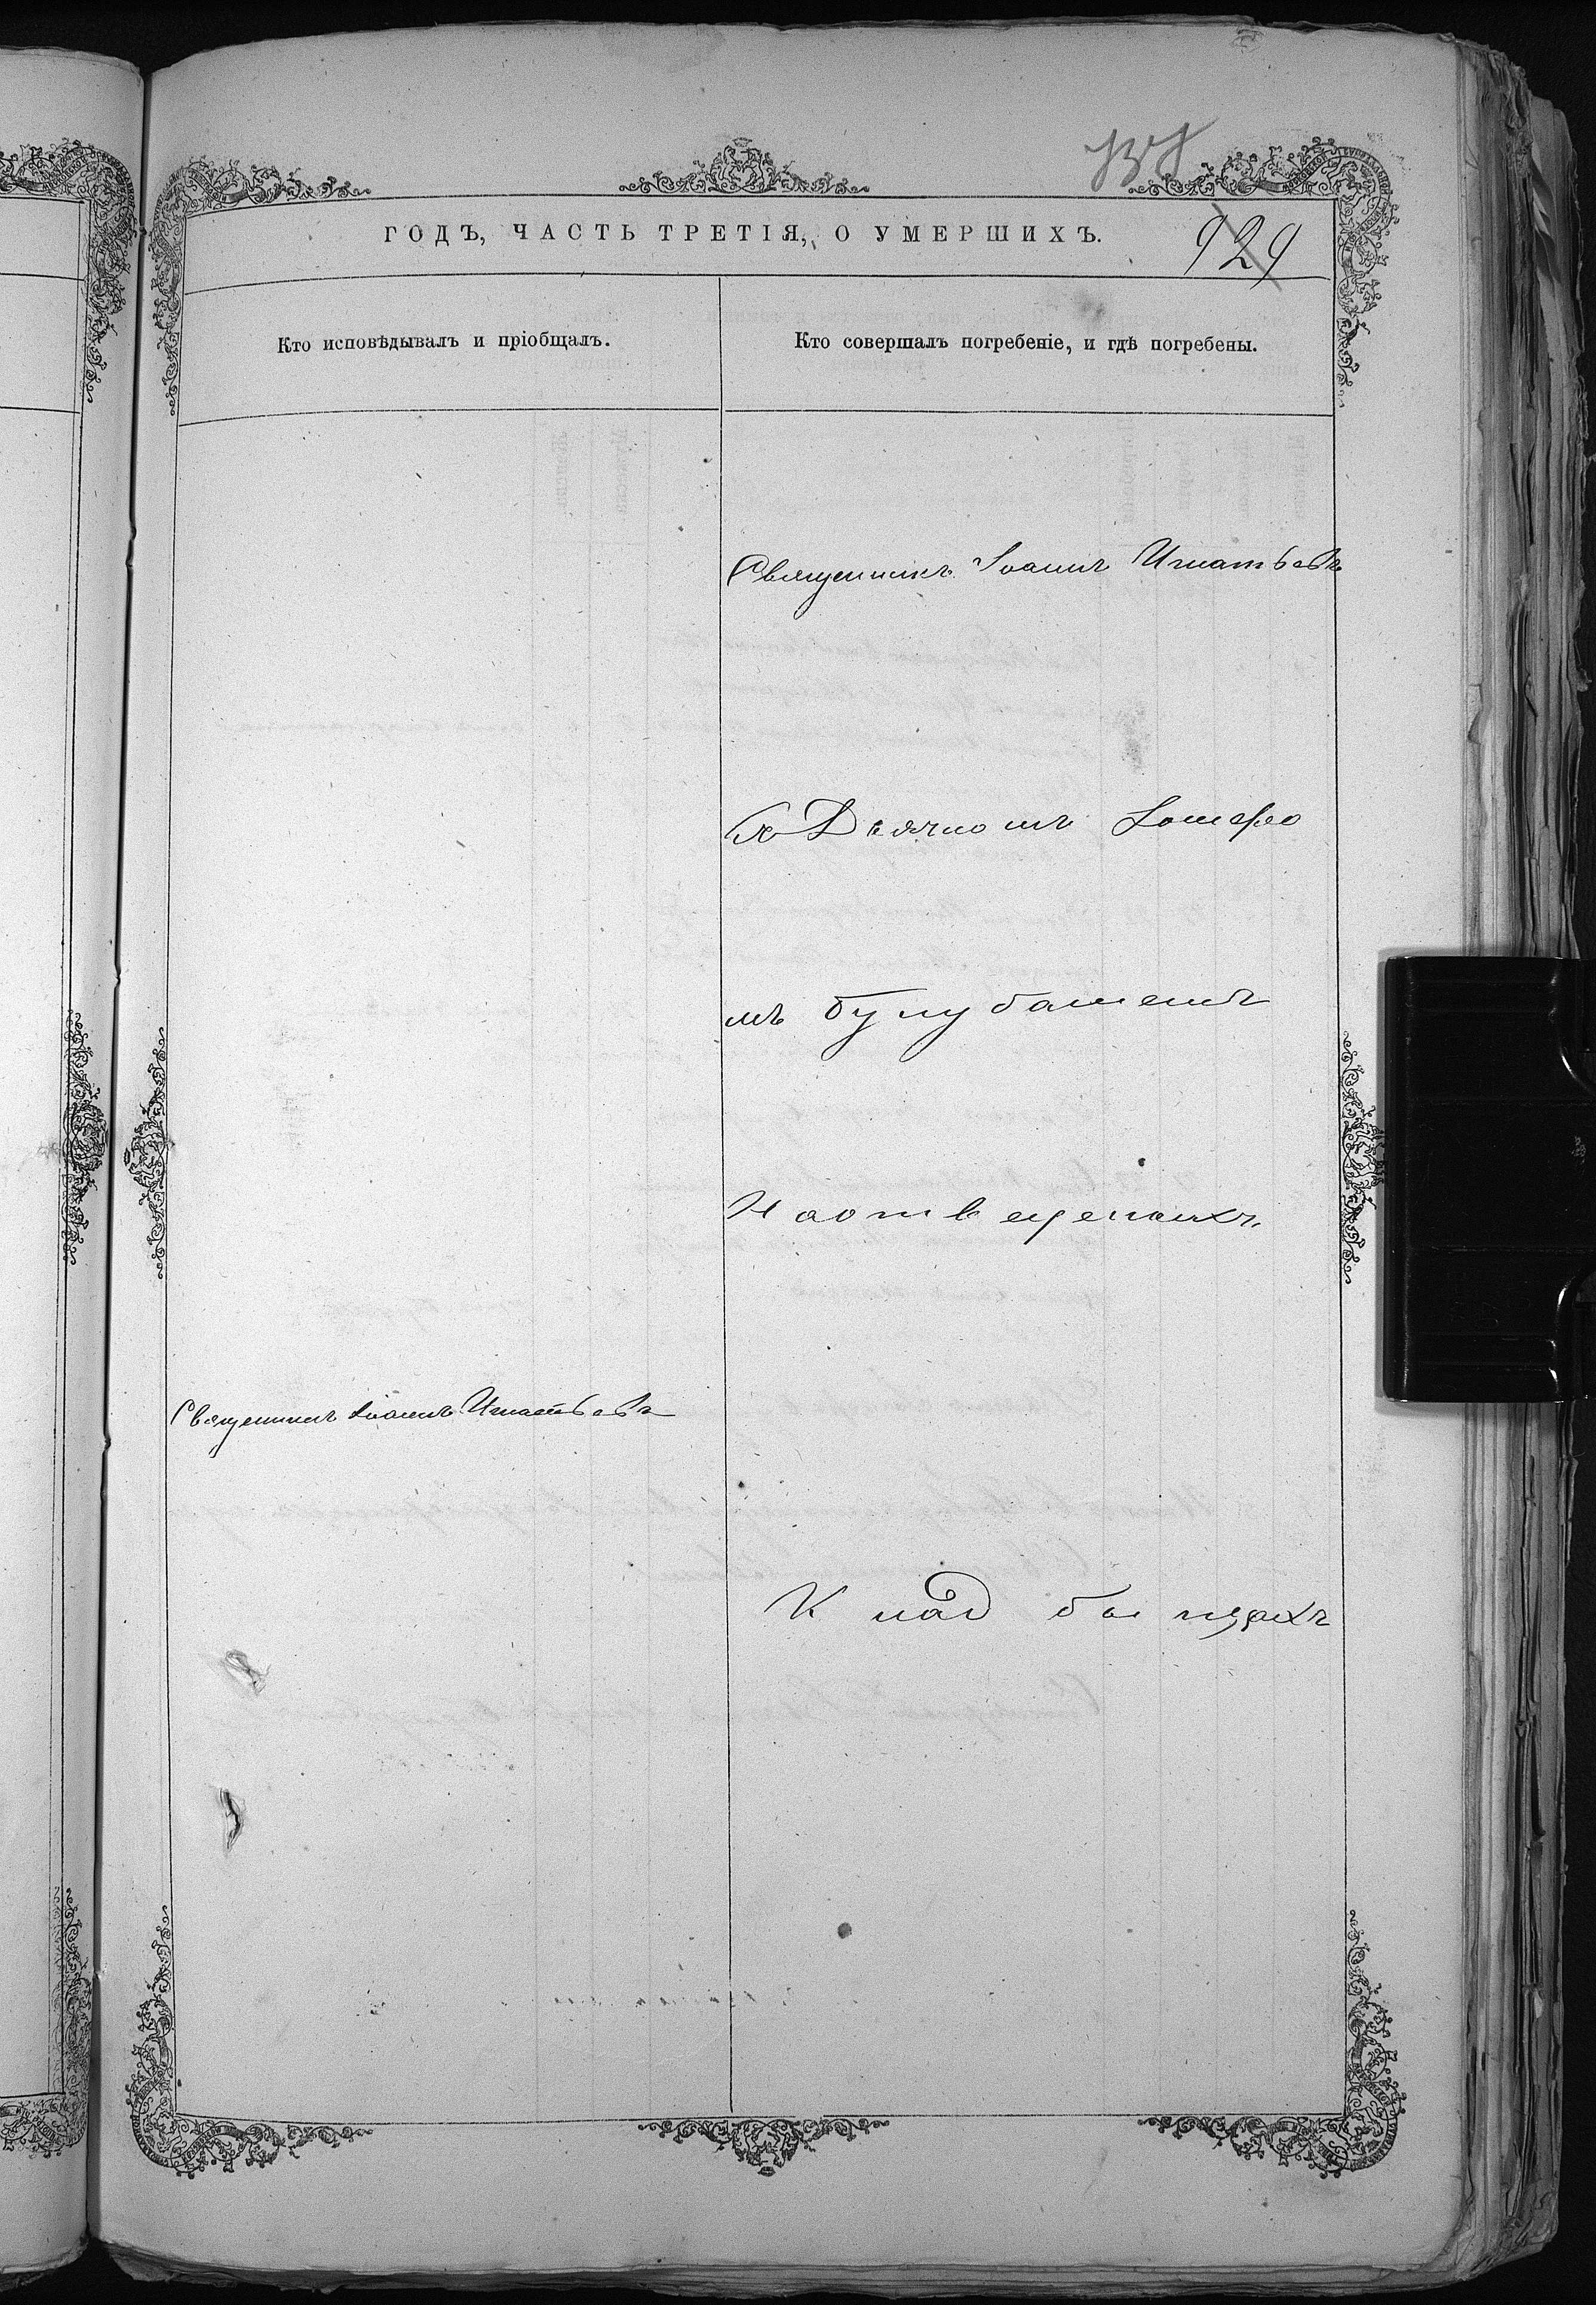 ГОДЪ, ЧАСТЬ ТРЕТІЯ, О УМЕРШИХЪ.
929
Кто исповѣдывалъ и пріобщалъ.
Кто совершалъ погребеніе, и гдѣ погребены.
Священникъ Іоаннъ Игнатьевъ
съ Дьячкомъ
Наотведенныхъ
Священникъ Іоаннъ Игнатьевъ
Кладбищахъ